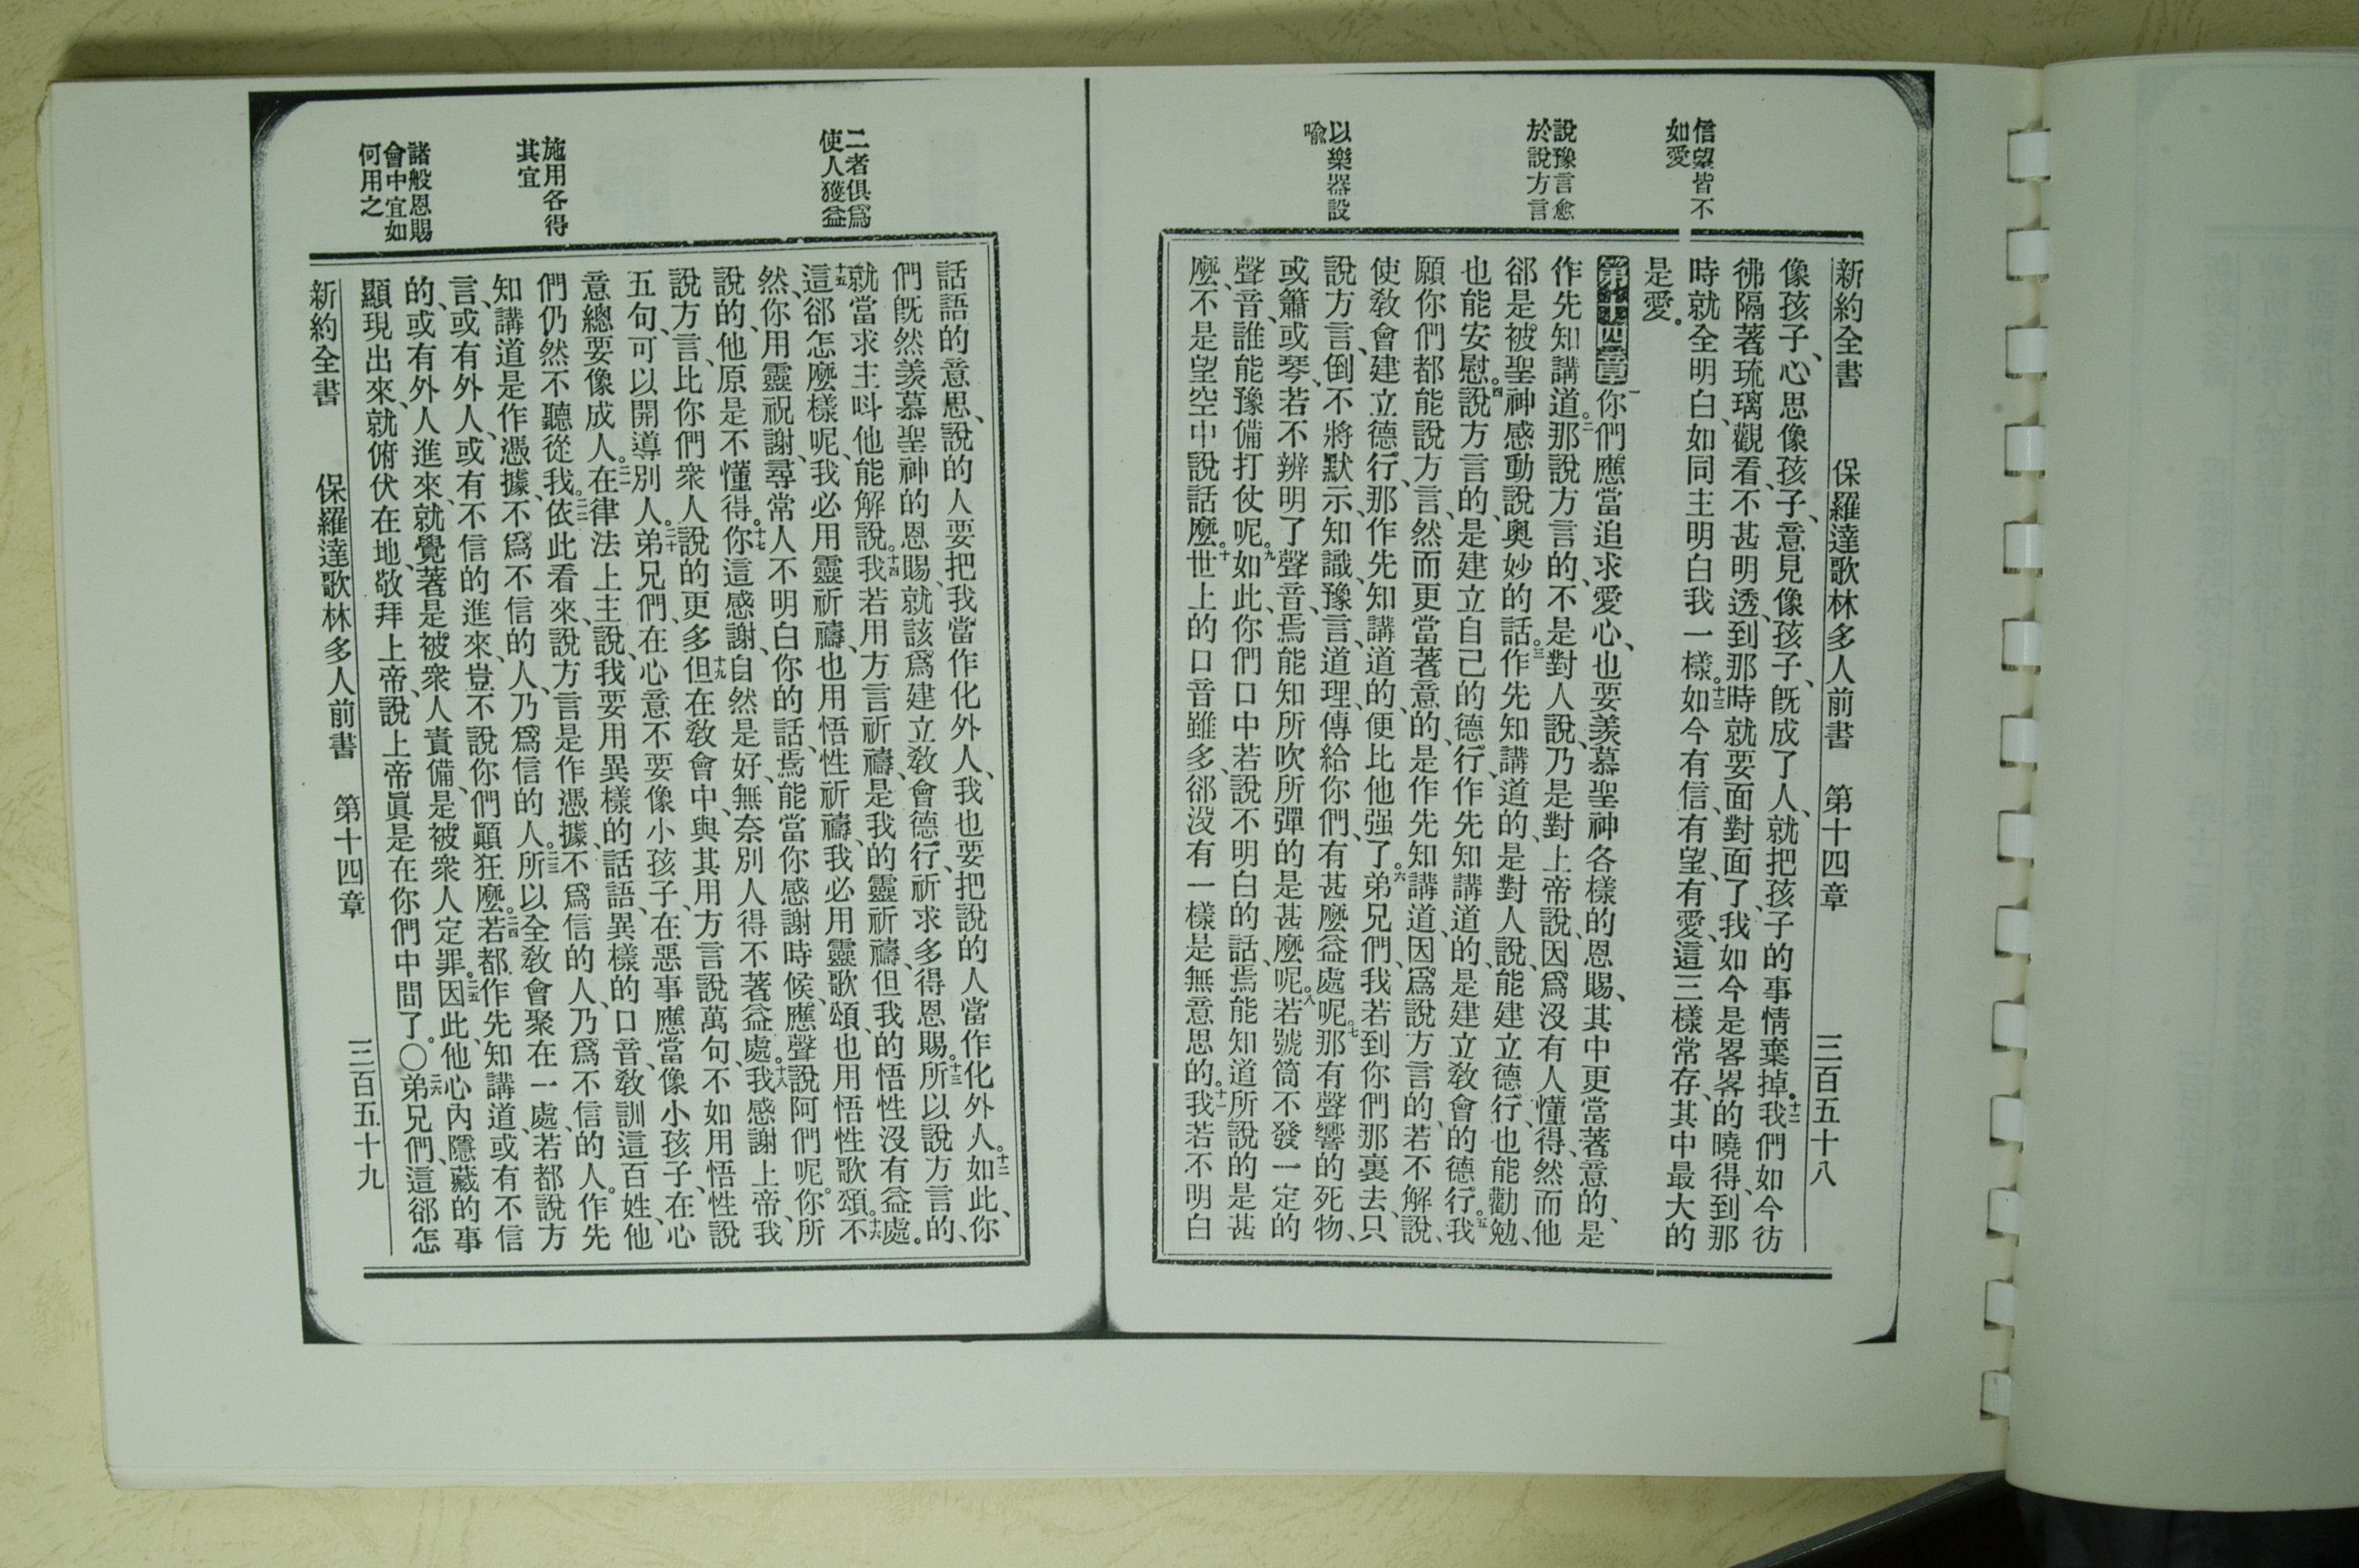 新約全書　保羅達歌林多人前書　第十四章　三百五十八
信望皆不
如愛
說豫言愈
於說方言
以樂器設
喻
像孩子、心思像孩子、意見像孩子、旣成了人、就把孩子的事情棄掉。十二我們如今彷
彿隔著琉璃觀看、不甚明透、到那時就要面對面了、我如今是畧畧的曉得、到那
時就全明白、如同主明白我一樣。十三如今有信、有望、有愛、這三樣常存、其中最大的
是愛。
第十四章一你們應當追求愛心、也要羨慕聖神各樣的恩賜、其中更當著意的、是
作先知講道。二那說方言的、不是對人說、乃是對上帝說、因爲沒有人懂得、然而他
郤是被聖神感動說奧妙的話。三作先知講道的、是對人說、能建立德行、也能勸勉、
也能安慰。四說方言的、是建立自己的德行、作先知講道的、是建立敎會的德行。五我
願你們都能說方言、然而更當著意的、是作先知講道、因爲說方言的、若不解說、
使敎會建立德行、那作先知講道的、便比他强了。六弟兄們、我若到你們那裏去、只
說方言、倒不將默示、知識、豫言、道理、傳給你們、有甚麼益處呢。七那有聲響的死物、
或簫、或琴、若不辨明了聲音、焉能知所吹所彈的是甚麼呢。八若號筒不發一定的
聲音、誰能豫備打仗呢。九如此、你們口中若說不明白的話、焉能知道所說的是甚
麼、不是望空中說話麼。十世上的口音雖多、郤沒有一樣是無意思的。十一我若不明白
二者俱爲
使人獲益
施用各得
其宜
諸般恩賜
會中宜如
何用之
話語的意思、說的人要把我當作化外人、我也要把說的人當作化外人。十二如此、你
們旣然羨慕聖神的恩賜、就該爲建立敎會德行、祈求多得恩賜。十三所以說方言的、
就當求主呌他能解說。十四我若用方言祈禱、是我的靈祈禱、但我的悟性沒有益處。
十五這郤怎麼樣呢、我必用靈祈禱、也用悟性祈禱、我必用靈歌頌、也用悟性歌頌。十六不
然、你用靈祝謝、尋常人不明白你的話、焉能當你感謝時候、應聲說阿們呢。你所
說的、他原是不懂得。十七你這感謝、自然是好、無奈別人得不著益處。十八我感謝上帝、我
說方言、比你們衆人說的更多、十九但在敎會中、與其用方言說萬句、不如用悟性說
五句、可以開導別人。二十弟兄們、在心意不要像小孩子、在惡事應當像小孩子、在心
意總要像成人。二一在律法上主說、我要用異樣的話語、異樣的口音、敎訓這百姓、他
們仍然不聽從我。二二依此看來、說方言是作憑據、不爲信的人、乃爲不信的人。作先
知講道是作憑據、不爲不信的人、乃爲信的人。二三所以全敎會聚在一處、若都說方
言、或有外人、或有不信的進來、豈不說你們顚狂麼。二四若都作先知講道、或有不信
的、或有外人進來、就覺著是被衆人責備、是被衆人定罪。二五因此、他心內隱藏的事
顯現出來、就俯伏在地、敬拜上帝、說上帝眞是在你們中間了。〇二六弟兄們、這郤怎
新約全書　保羅達歌林多人前書　第十四章　三百五十九